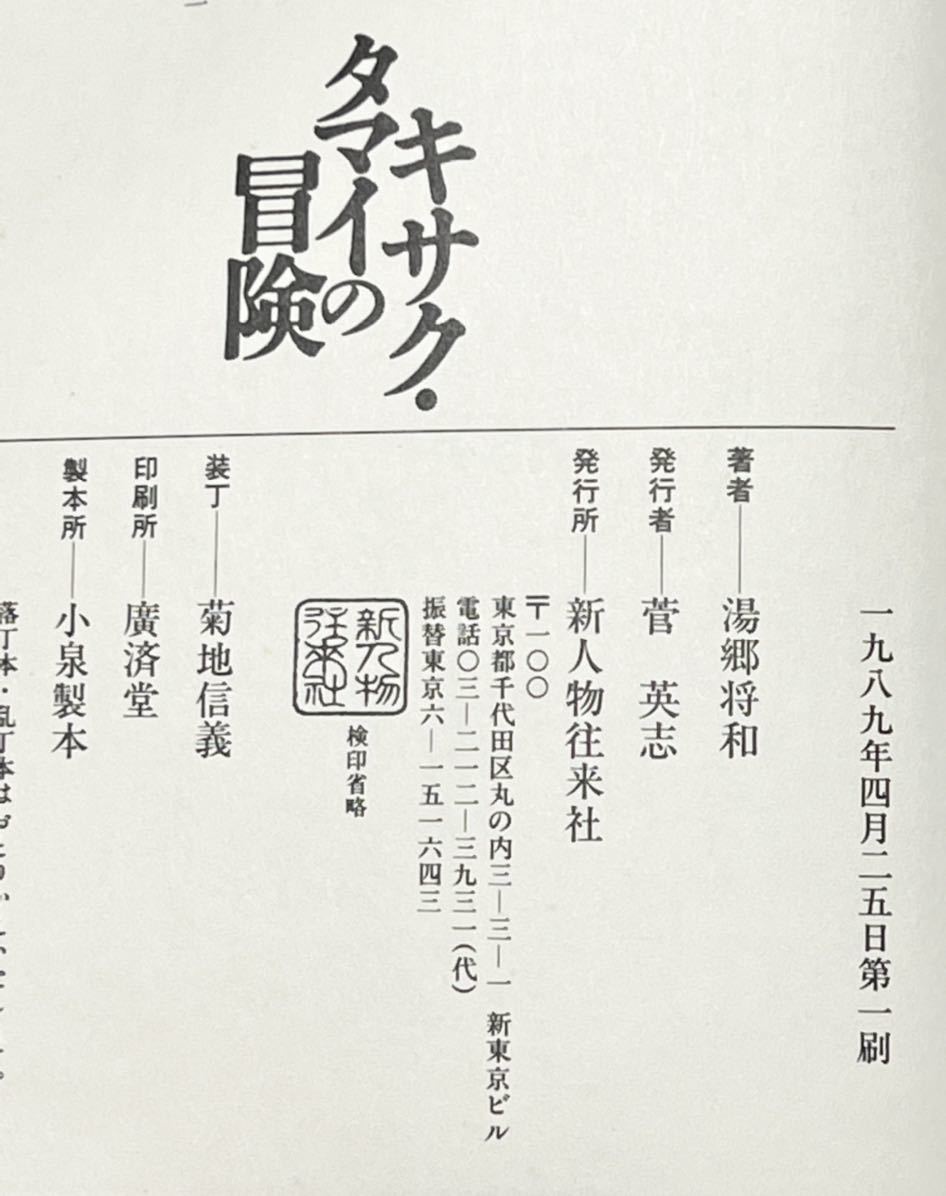 キサク・
タマイの
冒険
一九八九年四月二五日第一刷
著者――湯郷将和
発行者――菅　英志
発行所――新人物往来社
〒一〇〇
東京都千代田区丸の内三―三―一　新東京ビル
電話〇三―二一二―三九三一（代）
振替東京六―一五一六四三
新人物
往来社
検印省略
装丁――菊地信義
印刷所――廣済堂
製本所――小泉製本
落丁本・乱丁本は